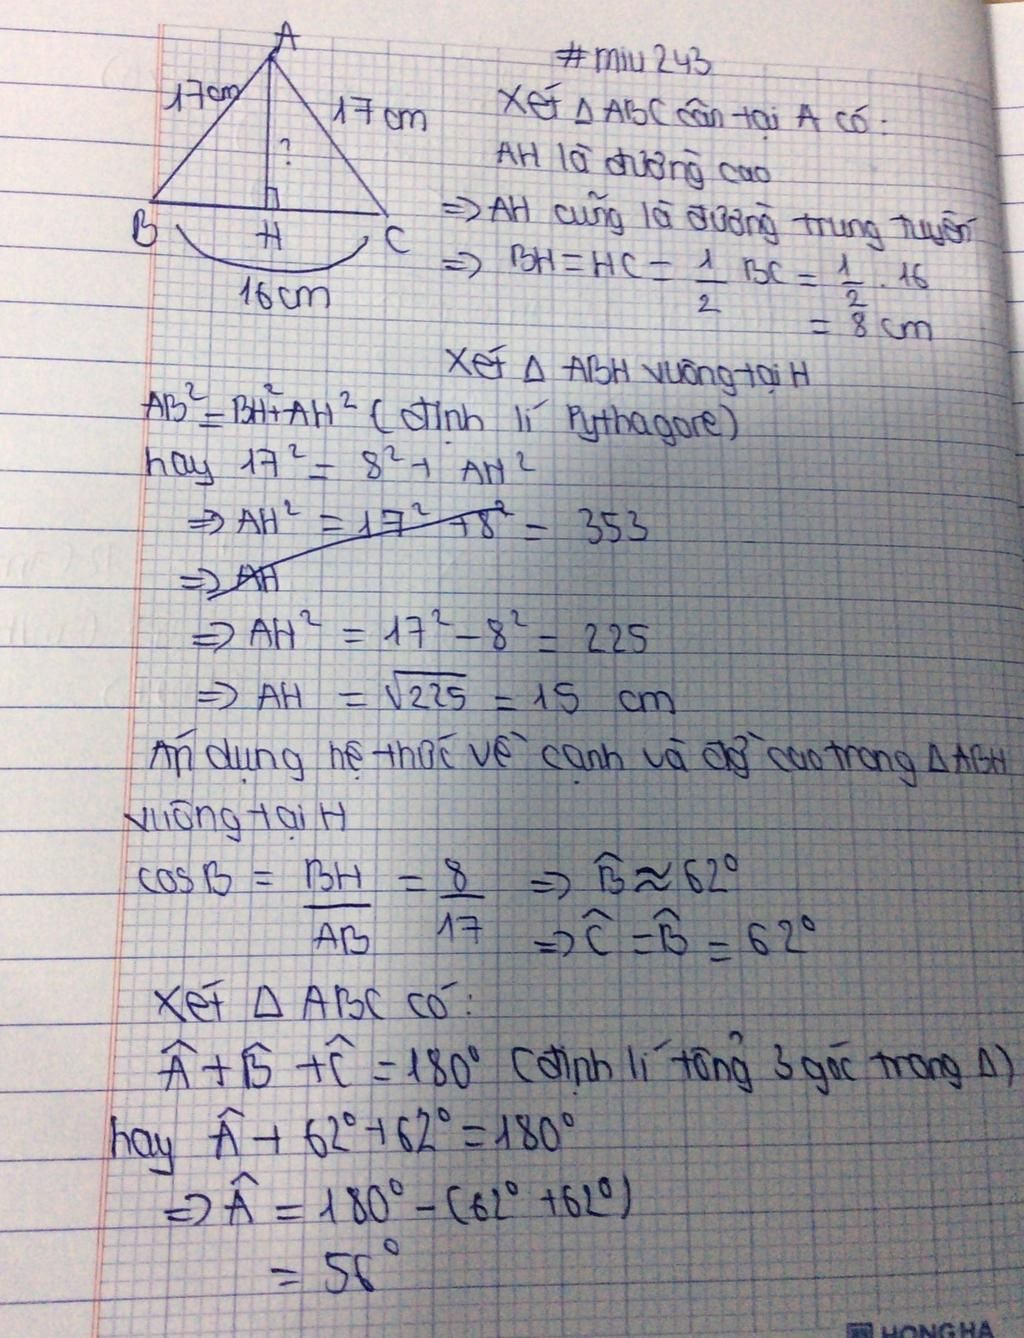 A
#miu243
17cm
17cm
Xét Δ ABC cân tại A có:
?
AH là đường cao
B
H
C
=> AH cũng là đường trung tuyến
=> BH = HC = 1/2 BC = 1/2 . 16
16cm
= 8 cm
Xét Δ ABH vuông tại H
AB² = BH² + AH² (định lí Pythagore)
hay 17² = 8² + AH²
=> AH² = 17² + 8² = 353
=> AH
=> AH² = 17² - 8² = 225
=> AH = √225 = 15 cm
Áp dụng hệ thức về cạnh và đg cao trong Δ ABH
vuông tại H
cosB = BH/AB = 8/17 => B̂ ≈ 62°
=> Ĉ = B̂ = 62°
Xét Δ ABC có:
Â + B̂ + Ĉ = 180° (định lí tổng 3 góc trong Δ)
hay Â + 62° + 62° = 180°
=> Â = 180° - (62° + 62°)
= 56°
HONG HA